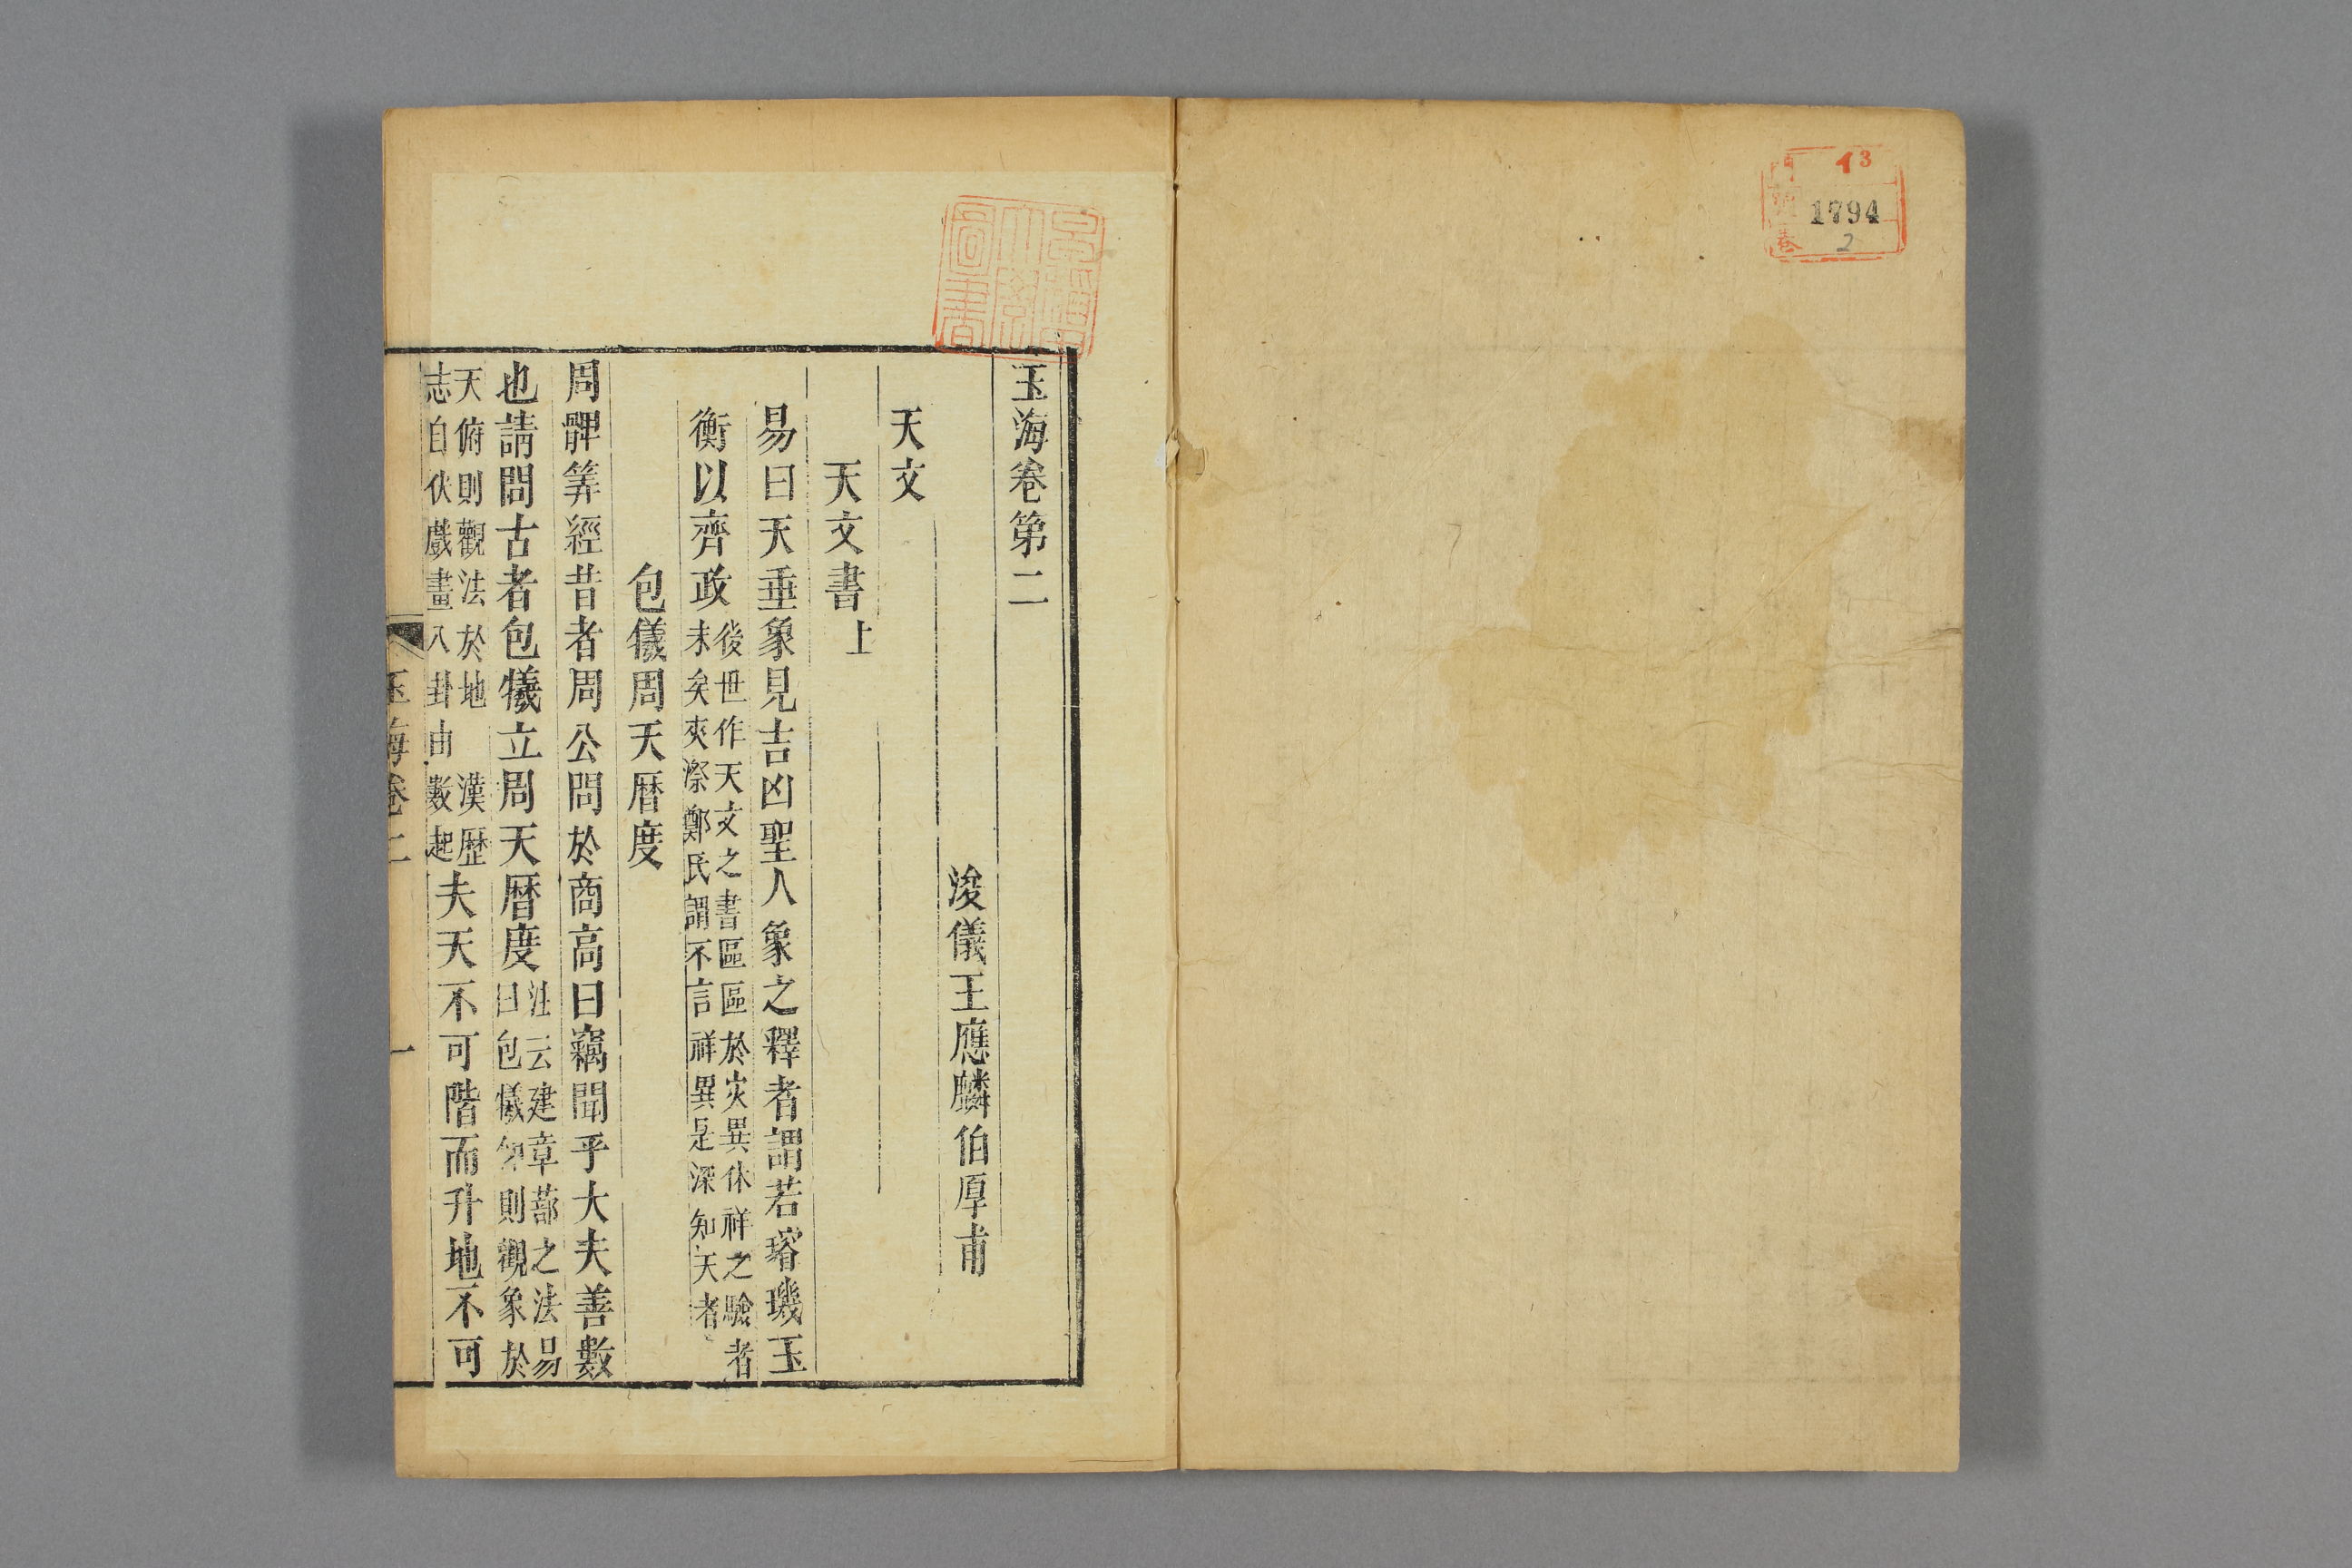 13
門
號
卷
1794
2
圖書
玉海卷第二
浚儀王應麟伯厚甫
天文
天文書上
易曰天垂象見吉凶聖人象之釋者謂若璿璣玉
衡以齊政後世作天文之書區區於灾異休祥之驗者
末矣夾漈鄭氏謂不言祥異是深知天者
包儀周天曆度
周髀筭經昔者周公問於商高曰竊聞乎大夫善數
也請問古者包犧立周天曆度注云建章蔀之法易
曰包犧仰則觀象於
天俯則觀法於地 漢歷
志自伏戲畫八卦由數起夫天不可階而升地不可
玉海卷二
一